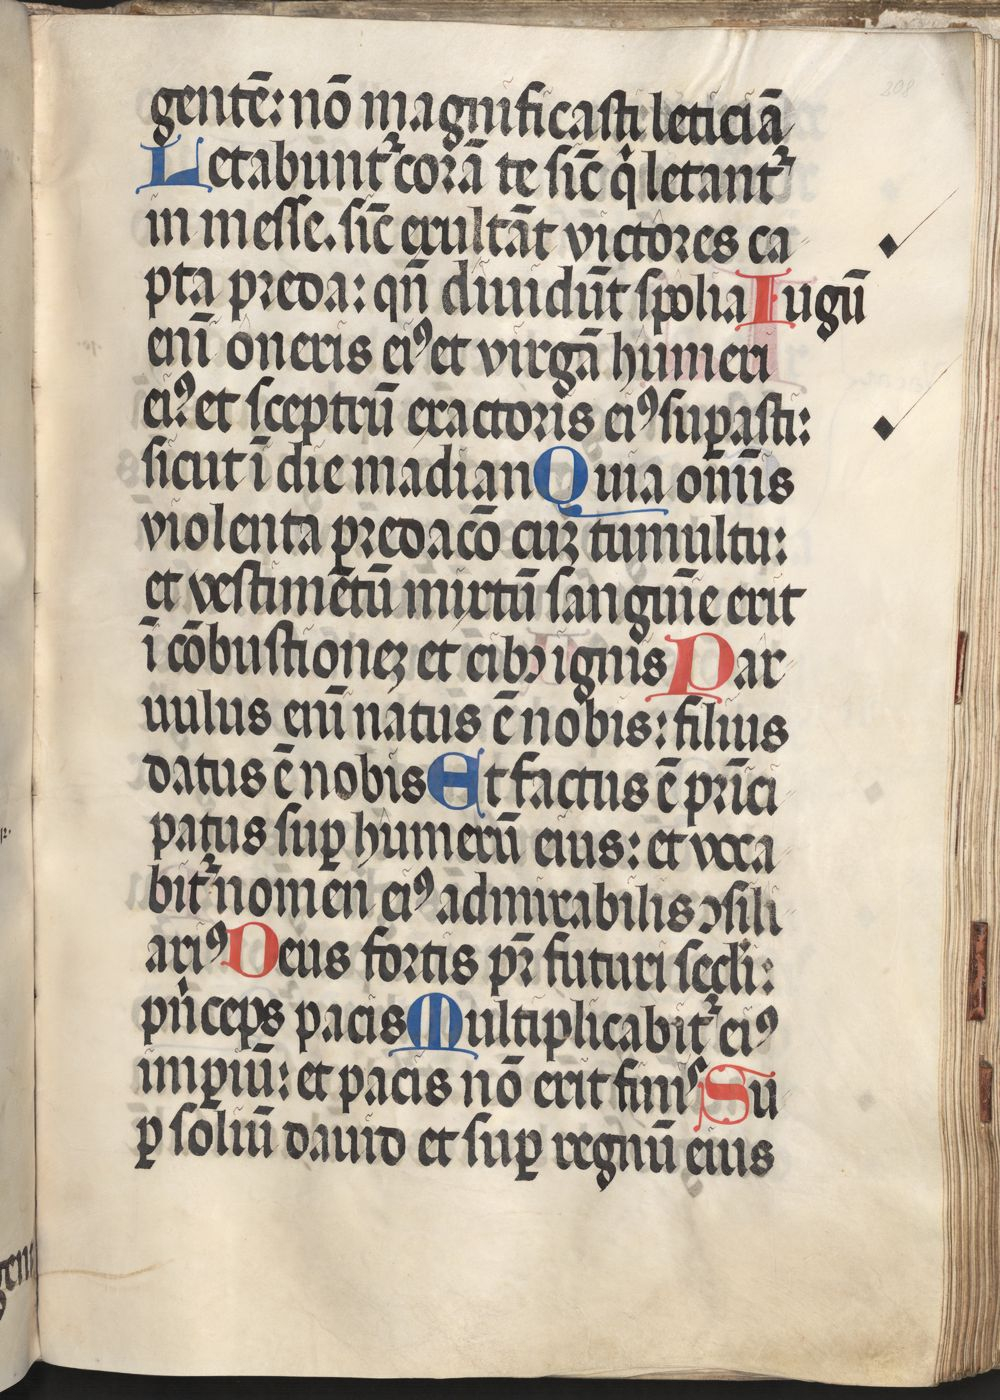 gentē: nō magnificasti leticiā
Letabunt᷑ corā te sic̄ qͥ letant᷑
in messe. sic̄ exultāt victores ca
pta preda: qn̄ diuidūt spolia Iugū
eni᷒ oneris eiꝰ et virgā humeri
eiꝰ: et sceptrū exactoris eiꝰ suꝑasti:
sicut ī die madian Quia om̄is
violenta predacō cuꝫ tumultu:
et vestimētū mixtū sanguīe erit
ī cōbustioneꝫ et cibꝰ ignis Par
uulus eni᷒ natus ē nobis: filius
datus ē nobis Et factus ē prīci
patus suꝑ humerū eius: et voca
bit᷑ nomen eiꝰ admirabilis ↄsili
ariꝰ Deus fortis pr̄ futuri secl̄i:
pͥnceps pacis Multiplicabit᷑ eiꝰ
imꝑiū: et pacis nō erit finiˢ Su
ꝑ soliū dauid et suꝑ regnū eius
308